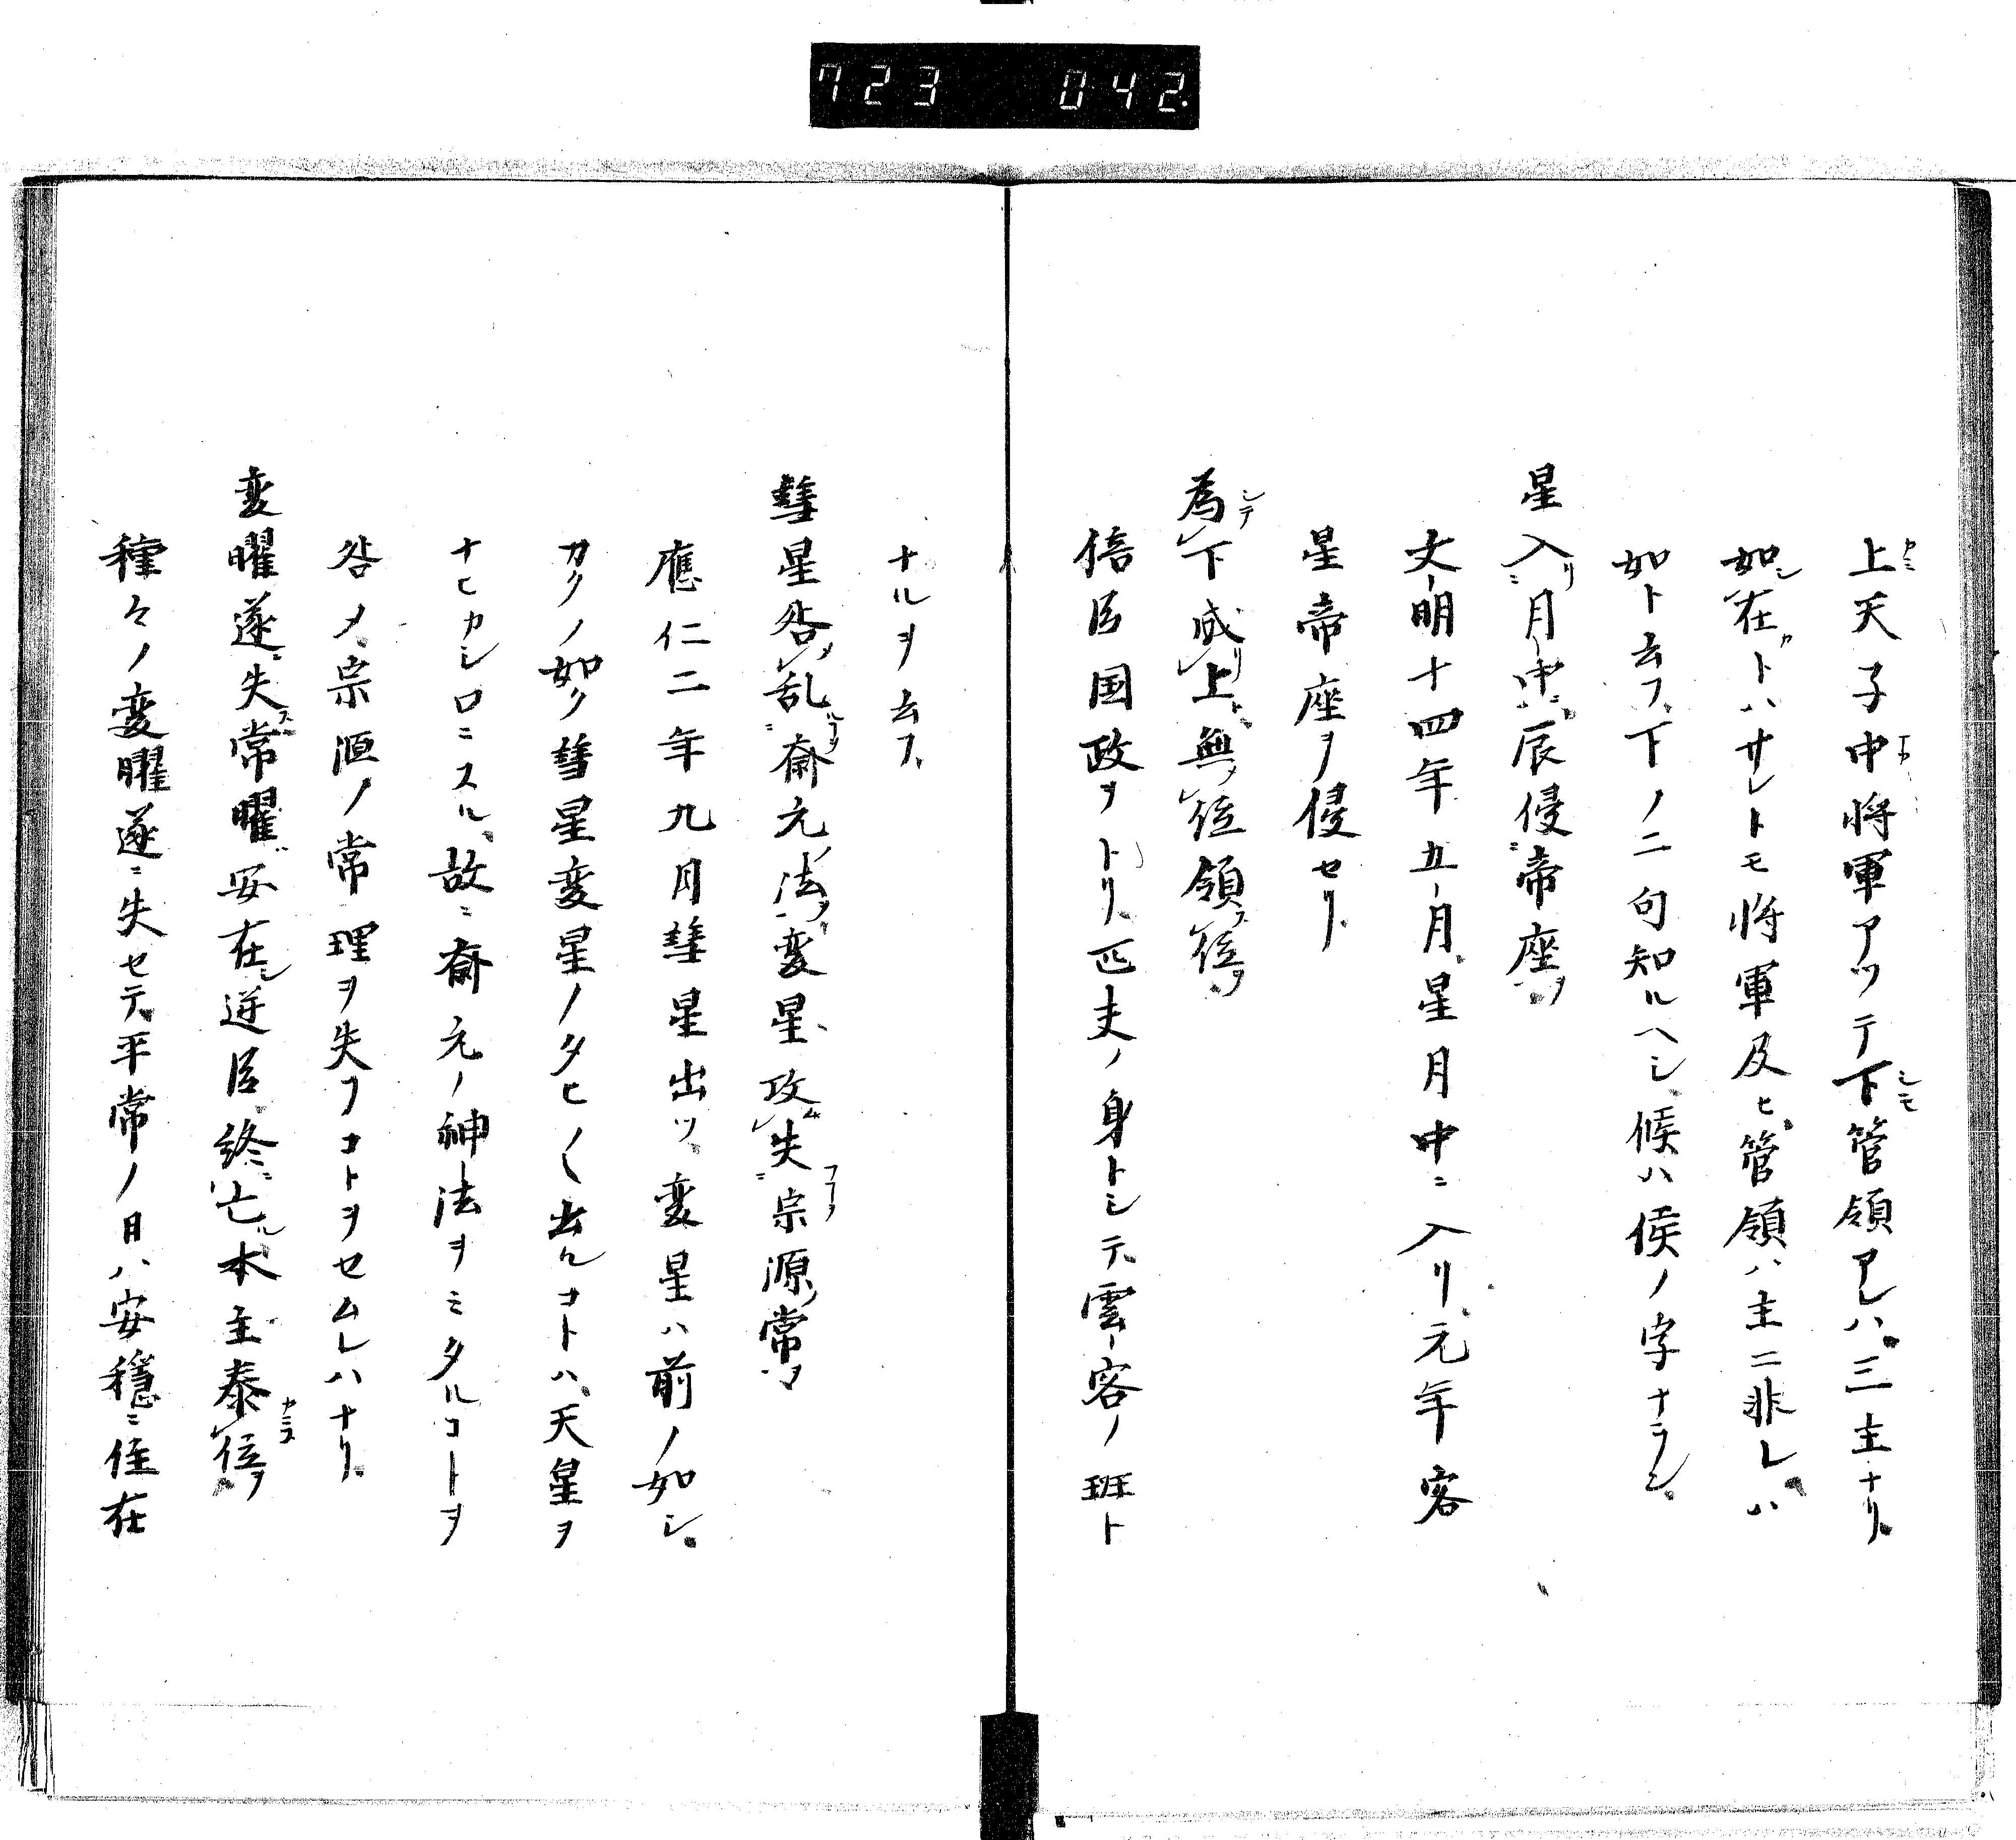 723 042
上天子中将軍アツテ下管領アレハ三主ナリ
如在トハサレトモ将軍及ヒ管領ハ主ニ非レハ
如ト云フ下ノ二句知ルヘシ候ハ侯ノ字ナラン
星入月中辰侵帝座
文明十四年五月星月中ニ入リ元年客
星帝座ヲ侵セリ
為下成上無位領位
倍臣国政ヲトリ匹夫ノ身トシテ雲客ノ班ト
ナルヲ云フ
彗星咎乱齋元法変星攻失宗源常
應仁二年九月彗星出ツ変星ハ前ノ如シ
カクノ如ク彗星変星ノタヒ〱出ルコトハ天星ヲ
ナヒカシロニスル故ニ齋元ノ神法ヲミタルコトヲ
咎メ宗源ノ常理ヲ失フコトヲセムレハナリ
変曜遂失常曜安在逆臣終亡本主泰位
種々ノ変曜遂ニ失セテ平常ノ月ハ安穏ニ住在